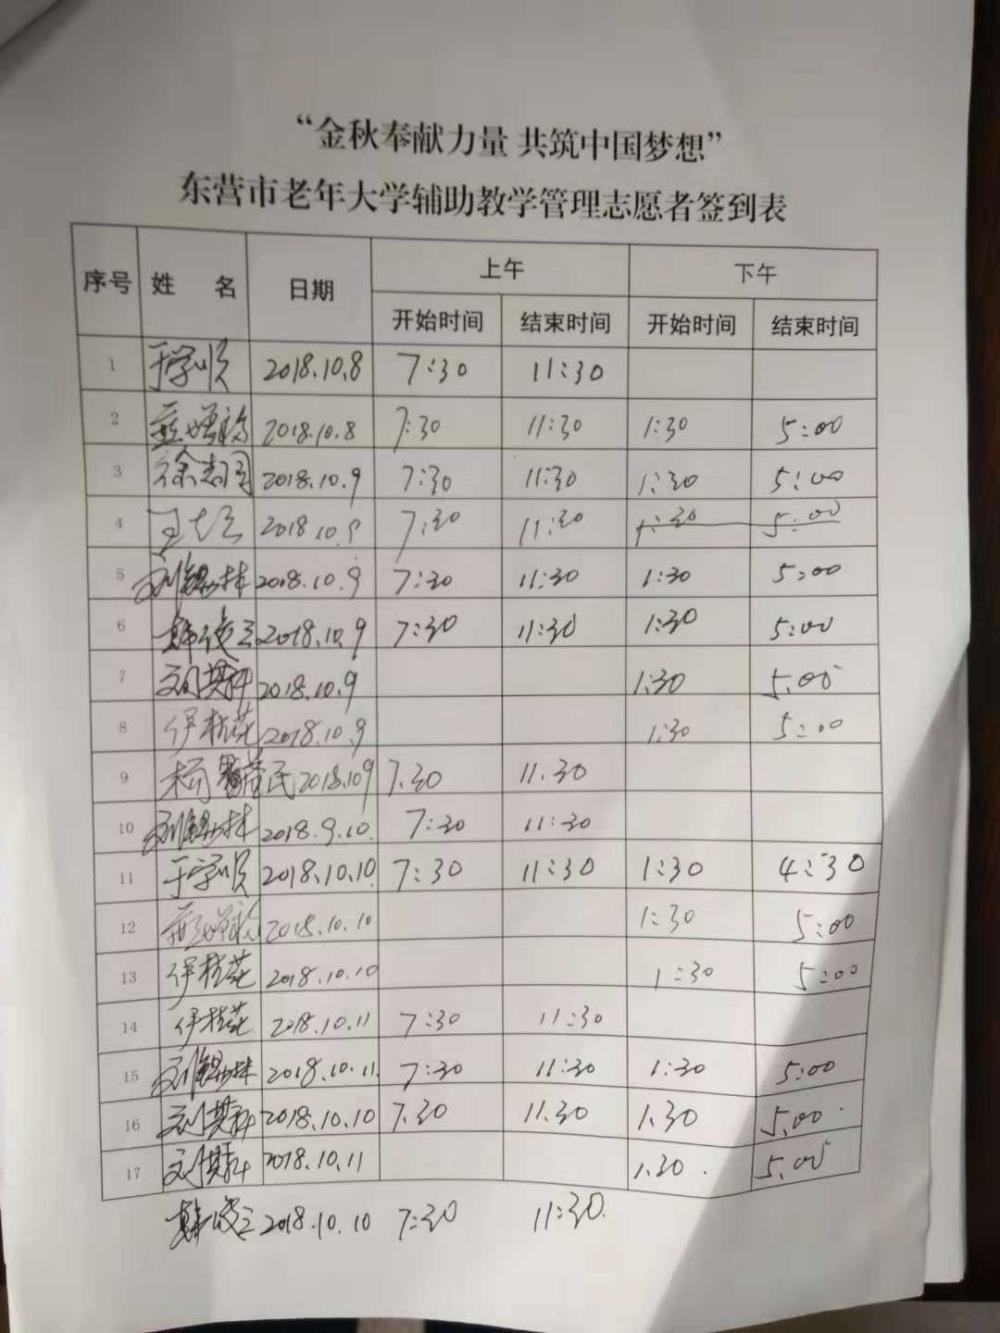 “金秋奉献力量 共筑中国梦想”
东营市老年大学辅助教学管理志愿者签到表
序号 姓 名 日期 上午 下午
开始时间 结束时间 开始时间 结束时间
1 于学顺 2018.10.8 7:30 11:30
2 2018.10.8 7:30 11:30 1:30 5:00
3 徐志国 2018.10.9 7:30 11:30 1:30 5:00
4 王 2018.10.9 7:30 11:30 1:30 5:00
5 刘锡林 2018.10.9 7:30 11:30 1:30 5:00
6 韩俊三 2018.10.9 7:30 11:30 1:30 5:00
7 刘其科 2018.10.9 1:30 5.00
8 伊桂花 2018.10.9 1:30 5:00
9 杨 民 2018.10 9 7.30 11.30
10 刘锡林 2018.9.10. 7:30 11:30
11 于学顺 2018.10.10 7:30 11:30 1:30 4:30
12 2018.10.10 1:30 5:00
13 伊桂花 2018.10.10 1:30 5:00
14 伊桂花 2018.10.11 7:30 11:30
15 刘锡林 2018.10.11 7:30 11:30 1:30 5:00
16 刘其科 2018.10.10 7.30 11.30 1.30 5.00
17 刘其科 2018.10.11 1.30. 5.00
韩俊三 2018.10.10 7:30 11:30.